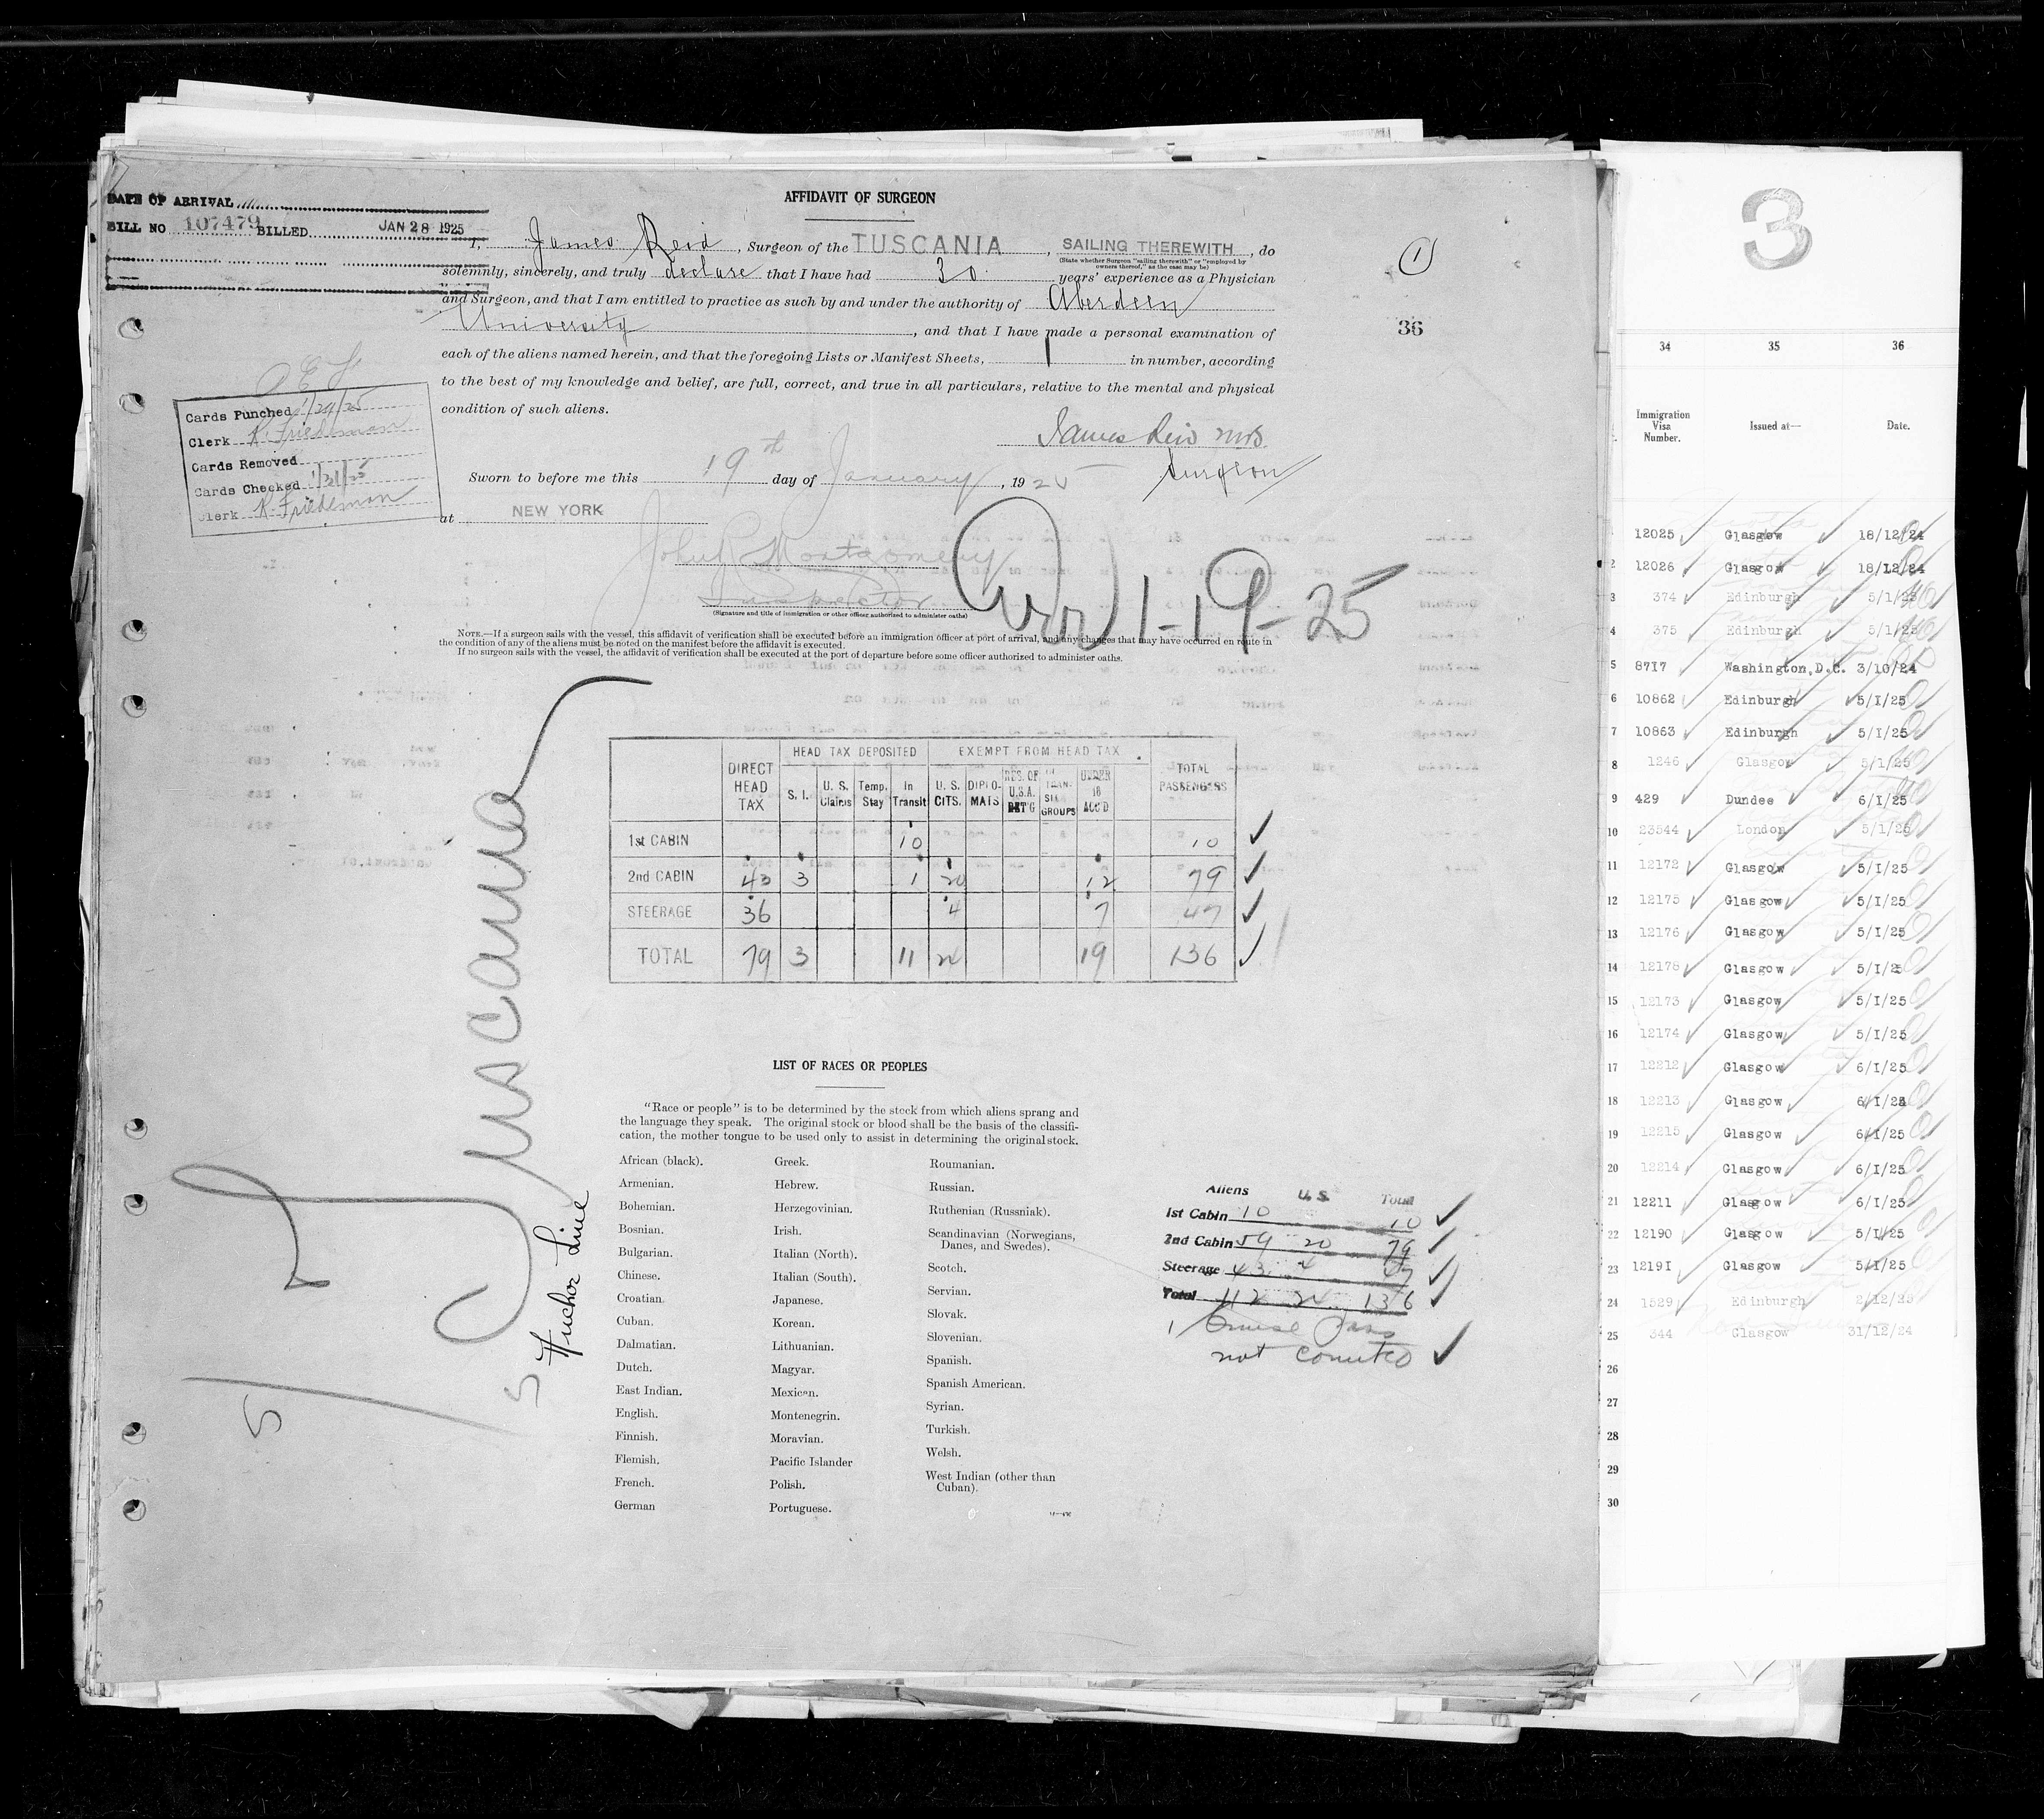 DATE OF ARRIVAL
BILL NO 107479 BILLED JAN 28 1925
AFFIDAVIT OF SURGEON
I, James Reid, Surgeon of the TUSCANIA, SAILING THEREWITH, do
(State whether Surgeon "sailing therewith" or "employed by owners thereof," as the case may be)
solemnly, sincerely, and truly declare that I have had 30 years' experience as a Physician
and Surgeon, and that I am entitled to practice as such by and under the authority of Aberdeen
University, and that I have made a personal examination of
each of the aliens named herein, and that the foregoing Lists or Manifest Sheets, 1 in number, according
to the best of my knowledge and belief, are full, correct, and true in all particulars, relative to the mental and physical
condition of such aliens.
1
36
Cards Punched
Clerk K. Friedeman
Cards Removed
Cards Checked 1/21/25
Clerk K. Friedeman
James Reid MB.
Surgeon
Sworn to before me this 19th day of January, 1925
at NEW YORK
John R Montgomery
Inspector
(Signature and title of immigration or other officer authorized to administer oaths)
Arr 1-19-25
NOTE.—If a surgeon sails with the vessel, this affidavit of verification shall be executed before an immigration officer at port of arrival, and any changes that may have occurred en route in
the condition of any of the aliens must be noted on the manifest before the affidavit is executed.
If no surgeon sails with the vessel, the affidavit of verification shall be executed at the port of departure before some officer authorized to administer oaths.
HEAD TAX DEPOSITED EXEMPT FROM HEAD TAX
DIRECT HEAD TAX S. I. U. S. Claims Temp. Stay In Transit U. S. CITS. DIPLOMATS RES. OF U.S.A. RET'G IN TRANSIT GROUPS UNDER 16 ACC'D TOTAL PASSENGERS
1st CABIN 10 10
2nd CABIN 43 3 1 20 12 79
STEERAGE 36 4 7 47
TOTAL 79 3 11 24 19 136
Tuscania
Anchor Line
5
5
LIST OF RACES OR PEOPLES
"Race or people" is to be determined by the stock from which aliens sprang and
the language they speak. The original stock or blood shall be the basis of the classifi-
cation, the mother tongue to be used only to assist in determining the original stock.
African (black).
Armenian.
Bohemian.
Bosnian.
Bulgarian.
Chinese.
Croatian.
Cuban.
Dalmatian.
Dutch.
East Indian.
English.
Finnish.
Flemish.
French.
German
Greek.
Hebrew.
Herzegovinian.
Irish.
Italian (North).
Italian (South).
Japanese.
Korean.
Lithuanian.
Magyar.
Mexican.
Montenegrin.
Moravian.
Pacific Islander
Polish.
Portuguese.
Roumanian.
Russian.
Ruthenian (Russniak).
Scandinavian (Norwegians,
Danes, and Swedes).
Scotch.
Servian.
Slovak.
Slovenian.
Spanish.
Spanish American.
Syrian.
Turkish.
Welsh.
West Indian (other than
Cuban).
Aliens U. S. Total
1st Cabin 10 10
2nd Cabin 59 20 79
Steerage 43 4 47
Total 112 24 136
1 Cruise Pass
not counted
3
34 35 36
Immigration Visa Number. Issued at— Date.
1 12025 Glasgow 18/12/24
2 12026 Glasgow 18/12/24
3 374 Edinburgh 5/1/25
4 375 Edinburgh 5/1/25
5 8717 Washington, D.C. 3/10/24
6 10862 Edinburgh 5/I/25
7 10863 Edinburgh 5/I/25
8 1246 Glasgow 5/1/25
9 429 Dundee 6/I/25
10 23544 London 5/1/25
11 12172 Glasgow 5/I/25
12 12175 Glasgow 5/I/25
13 12176 Glasgow 5/I/25
14 12178 Glasgow 5/I/25
15 12173 Glasgow 5/I/25
16 12174 Glasgow 5/I/25
17 12212 Glasgow 6/I/25
18 12213 Glasgow 6/I/25
19 12215 Glasgow 6/I/25
20 12214 Glasgow 6/I/25
21 12211 Glasgow 6/I/25
22 12190 Glasgow 5/I/25
23 1219I Glasgow 5/I/25
24 1529 Edinburgh 2/12/25
25 344 Glasgow 31/12/24
26
27
28
29
30